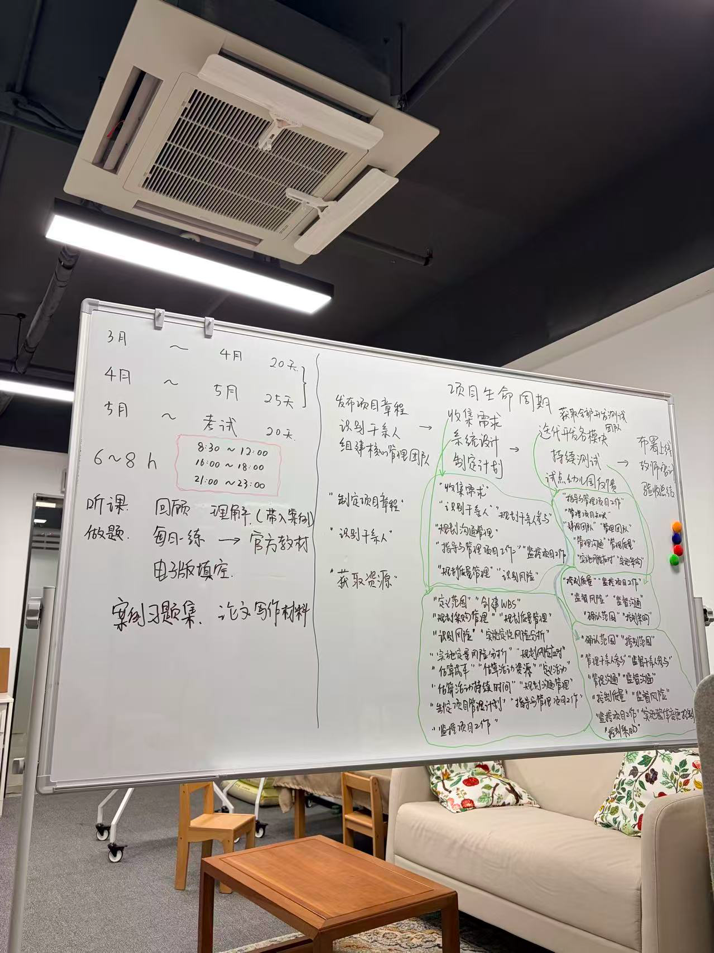 3月 ~ 4月 20天
4月 ~ 5月 25天
5月 ~ 考试 20天
6~8h
8:30 ~ 12:00
16:00 ~ 18:00
21:00 ~ 23:00
听课. 回顾 理解(带入案例)
做题. 每日一练 → 官方教材
电子版填空.
案例习题集. 论文写作材料
项目生命周期
发布项目章程
识别干系人
组建核心管理团队
→
收集需求
系统设计
制定计划
→
获取全部开发测试团队
迭代开发各模块
持续测试
试点幼儿园反展
→
布署上线
"制定项目章程"
"识别干系人"
"获取资源"
"收集需求"
"识别干系人" "规划干系人参与"
"规划沟通管理"
"指导与管理项目工作" "监控项目工作"
"规划质量管理" "识别风险"
"定义范围" "创建WBS"
"规划采购管理" "规划质量管理"
"识别风险" "实施定性风险分析"
"实施定量风险分析" "规划风险应对"
"估算成本" "估算活动资源" "定义活动"
"估算活动持续时间" "规划沟通管理"
"制定项目管理计划" "指导与管理项目工作"
"监控项目工作"
"指导与管理项目工作"
"管理项目知识"
"建设团队" "管理团队"
"管理沟通" "管理质量"
"控制质量" "监控项目工作"
"监督风险" "监督沟通"
"确认范围" "控制采购"
"确认范围" "控制范围"
"管理干系人参与" "监督干系人参与"
"管理沟通" "监督沟通"
"控制质量" "监督风险"
"监控项目工作" "实施整体变更控制"
"控制采购"